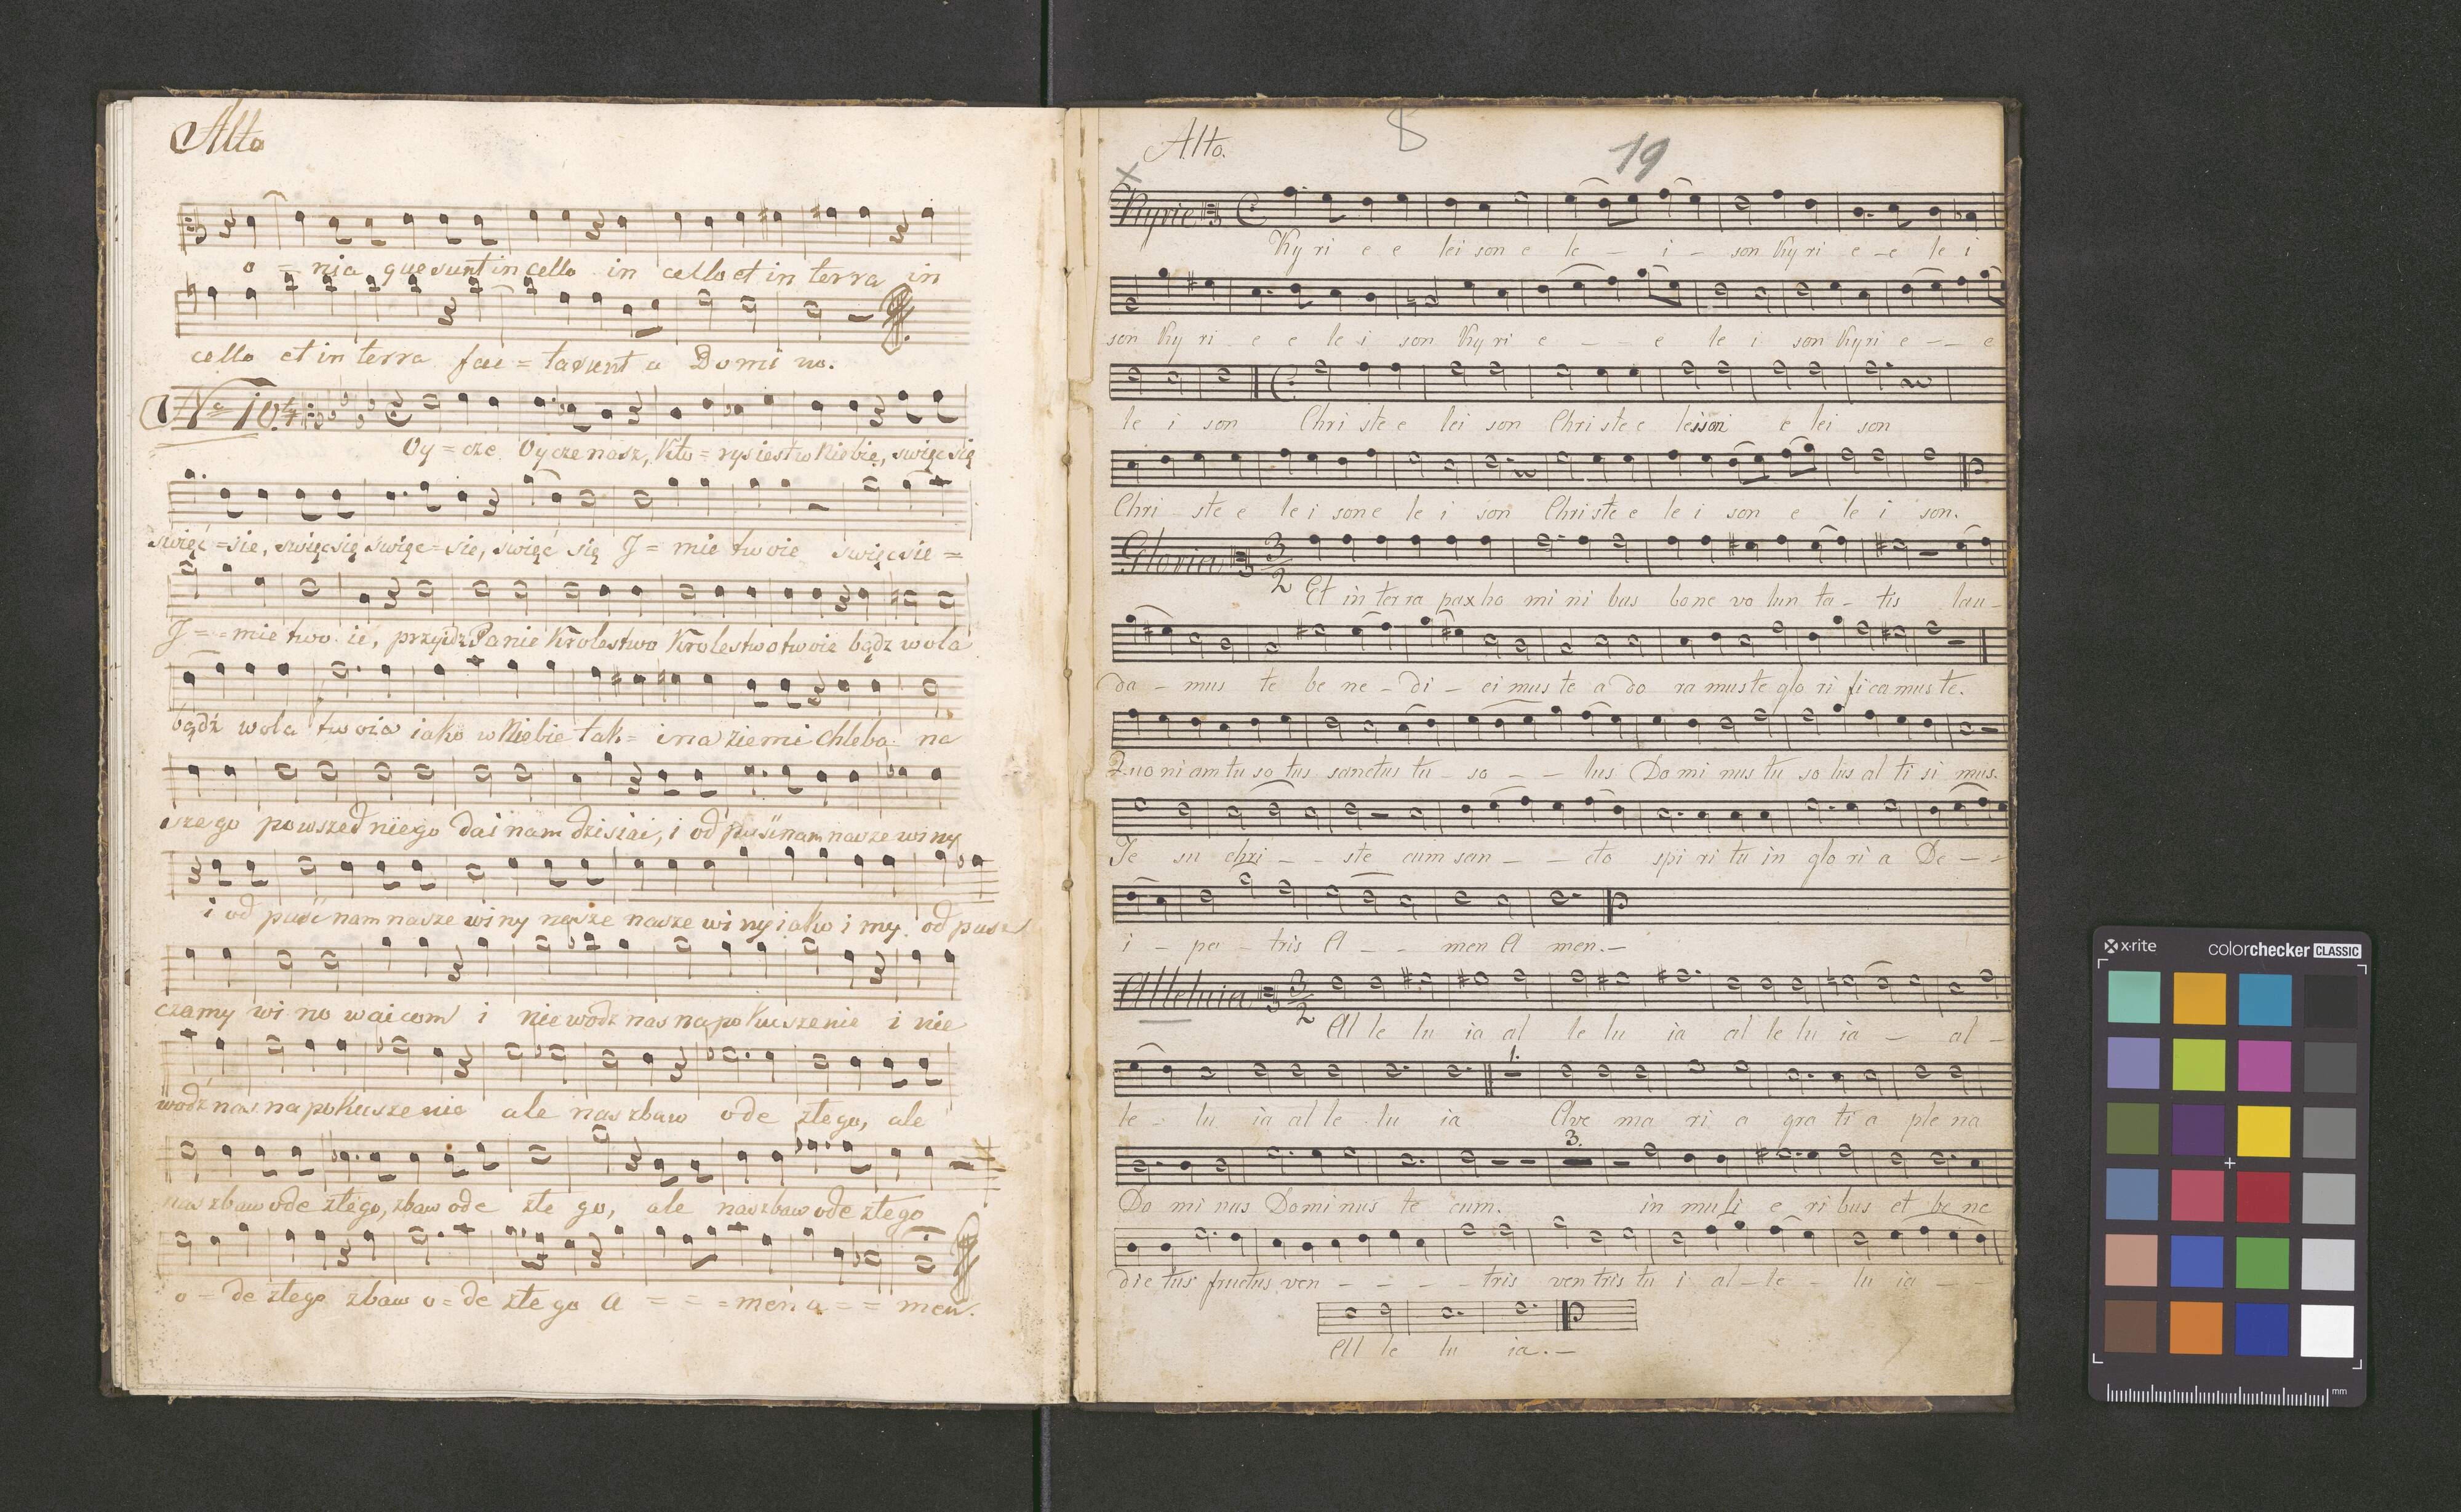 Alto
o = nia que sunt in cello in cello et in terra in
cello et in terra fac = ta sunt a Do mi no.
No 10
Oy = cze Oycze nasz, Kto = ryś iest w Niebie, święc się
święć = sie, święc się święc = sie, święć się J = mie twoie święc sie =
J = = mie two ie, przyidz Panie Krolestwo Krolestwo twoie bądz wola
bądź wola twoia iako w Niebie tak = i na ziemi Chleba na
szego powszedniego dai nam dzisiai, i od puść nam nasze winy
i od puść nam nasze winy nasze nasze winy iako i my od pusz
czamy wi no waicom i nie wodz nas na po kuszenie i nie
wodź nas na pokuszenie ale nas zbaw ode złego, ale
nas zbaw ode złego, zbaw ode złe go, ale nas zbaw ode złego
o = de złego zbaw o = de złe go A = = = men a = = men.
Alto.
8
19
Kyrie
Ky ri e e lei son e le - i - son Ky ri e - e le i
son Ky ri - e e le i son Ky ri e - - - e le i son Kyri e - - e
le i son Chri ste e lei son Chri ste e leison e lei son
Chri - ste e le i son e le i son Chri ste e le i son e le i son.
Gloria 3/2
Et in ter ra pax ho mi ni bus bone vo lun ta - tis lau -
da - mus te be ne - di - ci mus te a do ra mus te glo ri fi camus te.
Quo ni am tu so tus sanctus tu - so - - - lus Do mi nus tu so lus al ti si mus.
Je su chri - - ste cum san - - - cto spi ri tu in glo ri a De - -
i - pa - tris A - - - men A men. -
Alleluia 3/2
Al le lu ia al le lu ia al le lu ia - al -
1.
le - lu ia al le lu ia Ave ma ri a gra ti a ple na
3.
Do mi nus Dominus te cum. in muli e ri bus et be ne
dic tus fructus ven - - - - - tris ven tris tu i al - le - lu ia - -
All le lu ia. -
x-rite
colorchecker CLASSIC
mm